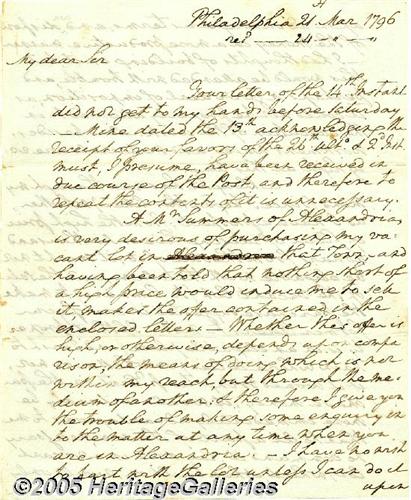 Philadelphia 21st Mar 1796
recd —— 24 — " — "
My dear Sir
Your letter of the 14th Instant
did not get to my hands before Saturday
— Mine dated the 13th acknowledging the
receipt of your favors of the 26th ulto & 2d Inst
must, I presume, have been received in
due course of the Post, and therefore to
repeat the contents of it is unnecessary.
A Mr Summers of Alexandria,
is very desirous of purchasing my va-
cant lot in that Town; and
having been told that nothing short of
a high price would induce me to sell
it makes the offer contained in the
enclosed letter. — Whether this offer is
high, or otherwise, depends upon compa
rison, the means of doing which is not
within my reach, but through the me-
dium of another, & therefore I give you
the trouble of making some enquiry in
to the matter at any time when you
are in Alexandria. — I have no wish
to part with the lot unless I can do it
upon
©2005 HeritageGalleries